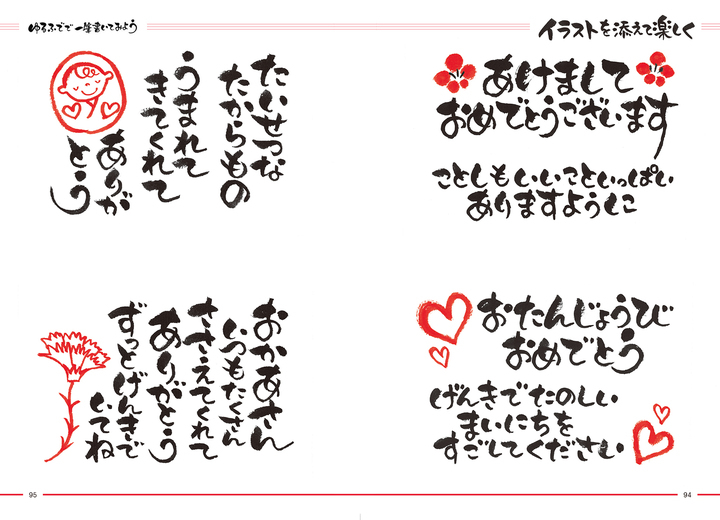 イラストを添えて楽しく
あけまして
おめでとうございます
ことしもいいこといっぱい
ありますように
おたんじょうび
おめでとう
げんきでたのしい
まいにちを
すごしてください
94
ゆるふでで 一筆書いてみよう
たいせつな
たからもの
うまれて
きてくれて
ありが
とう
おかあさん
いつもたくさん
ささえてくれて
ありがとう
ずっとげんきで
いてね
95